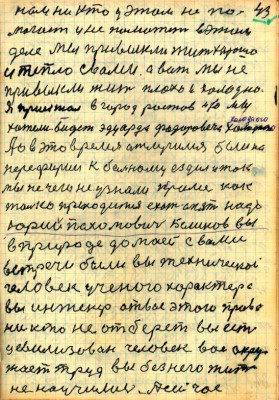 43
нам ни кто у этом не по-
могает и не поможет в этом
деле мы привыкли жит хорошо
и тепло с вами, а вот мы не
привыкли жит плохо и холодно.
Я приехал в город ростов и мы
хотели видет эдуарда федоровича холодного
До в это время
переферии к больному ездил и так
мы не чего не узнали кроме как
толко приходится ехат
юрий пахомович Климов вы
в природе до моей с вами
встречи были вы технической
человек ученого характера
вы инженер от вас этого права
ни кто не отберет вы есть
цевилизован человек вас окру-
жает труд вы без него жит
не научились. А сейчас